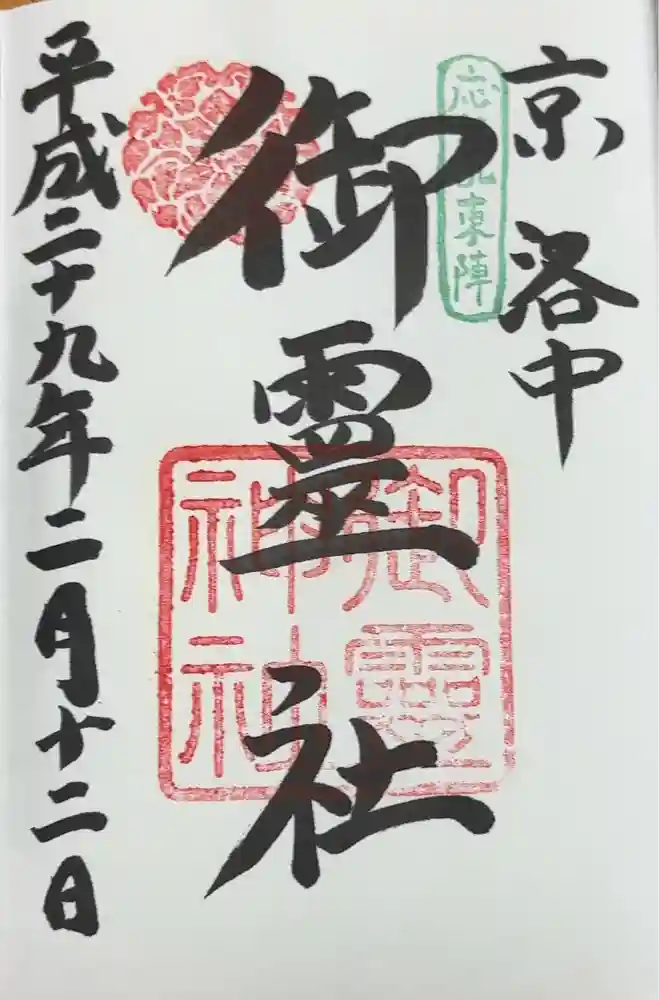 京洛中
応仁乱東陣
御靈社
御靈神社
平成二十九年二月十二日